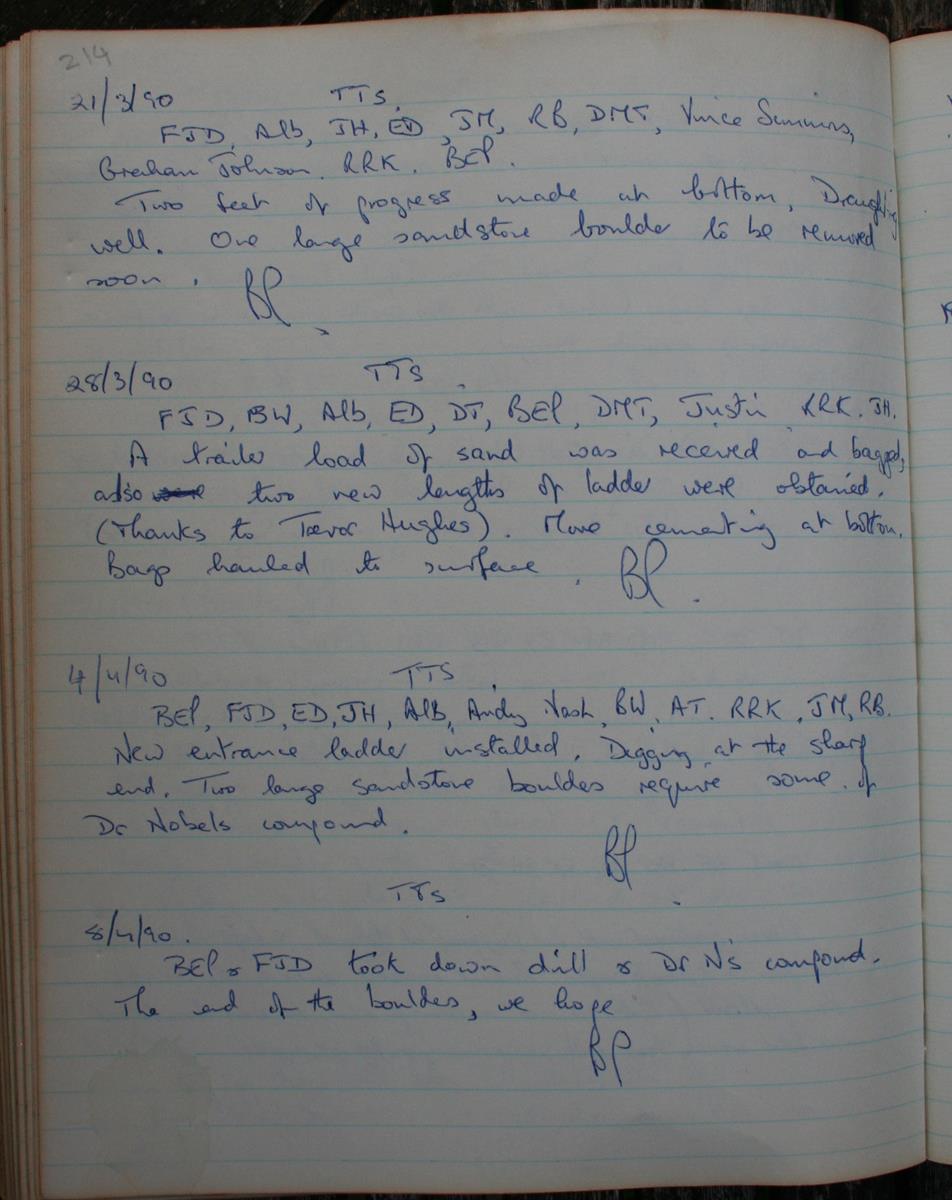 214
21/3/90 TTS.
FJD, Alb, JH, ED, JM, RB, DMT, Vince Simmons,
Graham Johnson. RRK. BEP.
Two feet of progress made at bottom, Draughting
well. One large sandstone boulder to be removed
soon. BP
28/3/90 TTS.
FJD, BW, Alb, ED, DT, BEP, DMT, Justin RRK. JH.
A trailer load of sand was received and bagged,
also two new lengths of ladder were obtained.
(Thanks to Trevor Hughes). More cementing at bottom.
Bags hauled to surface. BP.
4/4/90 TTS.
BEP, FJD, ED, JH, Alb, Andy Nash, BW, AT. RRK, JM, RB.
New entrance ladder installed. Digging at the sharp
end. Two large sandstone boulders require some of
Dr Nobels compound.
BP
TTS
8/4/90.
BEP & FJD took down drill & Dr N's compound.
The end of the boulders, we hope
BP